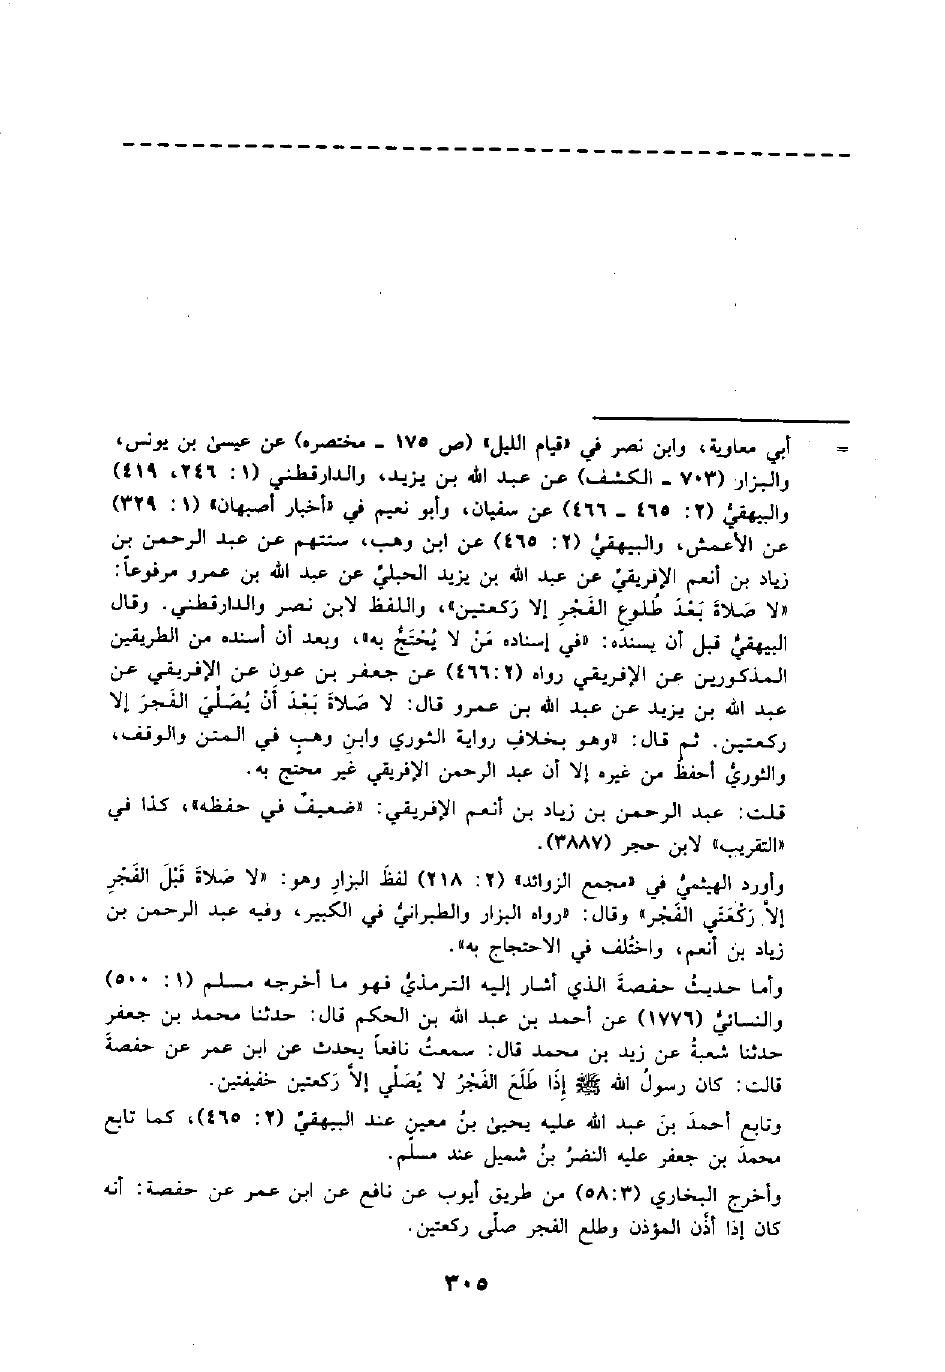 = أبي معاوية، وابن نصر في «قيام الليل» (ص ١٧٥ ـ مختصره) عن عيسىٰ بن يونس،
والبزار (٧٠٣ ـ الكشف) عن عبد الله بن يزيد، والدارقطني (١: ٢٤٦، ٤١٩)
والبيهقيُّ (٢: ٤٦٥ ـ ٤٦٦) عن سفيان، وأبو نعيم في «أخبار أصبهان» (١: ٣٢٩)
عن الأعمش، والبيهقيُّ (٢: ٤٦٥) عن ابن وهب، ستتهم عن عبد الرحمن بن
زياد بن أنعم الإفريقيِّ عن عبد الله بن يزيد الحبليِّ عن عبد الله بن عمرو مرفوعاً:
«لا صَلاةَ بَعْدَ طُلوعِ الفَجْرِ إلا رَكعتين»، واللفظ لابن نصر والدارقطني. وقال
البيهقيُّ قبل أن يسنده: «في إسناده مَنْ لا يُحْتَجُّ به»، وبعد أن أسنده من الطريقين
المذكورين عن الإفريقي رواه (٤٦٦:٢) عن جعفر بن عون عن الإفريقي عن
عبد الله بن يزيد عن عبد الله بن عمرو قال: لا صَلاةَ بَعْدَ أَنْ يُصَلِّيَ الفَجرَ إلا
ركعتين. ثم قال: «وهو بخلاف رواية الثوري وابنِ وهبٍ في المتن والوقف،
والثوريُّ أحفظُ من غيره إلا أن عبد الرحمن الإفريقي غير محتج به.
قلت: عبد الرحمن بن زياد بن أنعم الإفريقي: «ضعيفٌ في حفظه»، كذا في
«التقريب» لابن حجر (٣٨٨٧).
وأورد الهيثميُّ في «مجمع الزوائد» (٢: ٢١٨) لفظَ البزارِ وهو: «لا صَلاةَ قَبْلَ الفَجْرِ
إلاَّ رَكْعَتَيِ الفَجْر» وقال: «رواه البزار والطبرانيُّ في الكبير، وفيه عبد الرحمن بن
زياد بن أنعم، واختُلف في الاحتجاج به».
وأما حديث حفصةَ الذي أشار إليه الترمذيُّ فهو ما أخرجه مسلم (١: ٥٠٠)
والنسائيُّ (١٧٧٦) عن أحمد بن عبد الله بن الحكم قال: حدثنا محمد بن جعفر
حدثنا شعبةُ عن زيد بن محمد قال: سمعتُ نافعاً يحدث عن ابن عمر عن حفصةَ
قالت: كان رسولُ الله ﷺ إِذَا طَلَعَ الفَجْرُ لا يُصَلِّي إلاَّ رَكعتين خفيفتين.
وتابع أحمدَ بنَ عبد الله عليه يحيىٰ بنُ معينٍ عند البيهقيِّ (٢: ٤٦٥)، كما تابع
محمدَ بن جعفر عليه النضرُ بنُ شميل عند مسلم.
وأخرج البخاري (٥٨:٣) من طريق أيوب عن نافع عن ابن عمر عن حفصة: أنه
كان إذا أذَّن المؤذن وطلع الفجر صلّى ركعتين.
٣٠٥